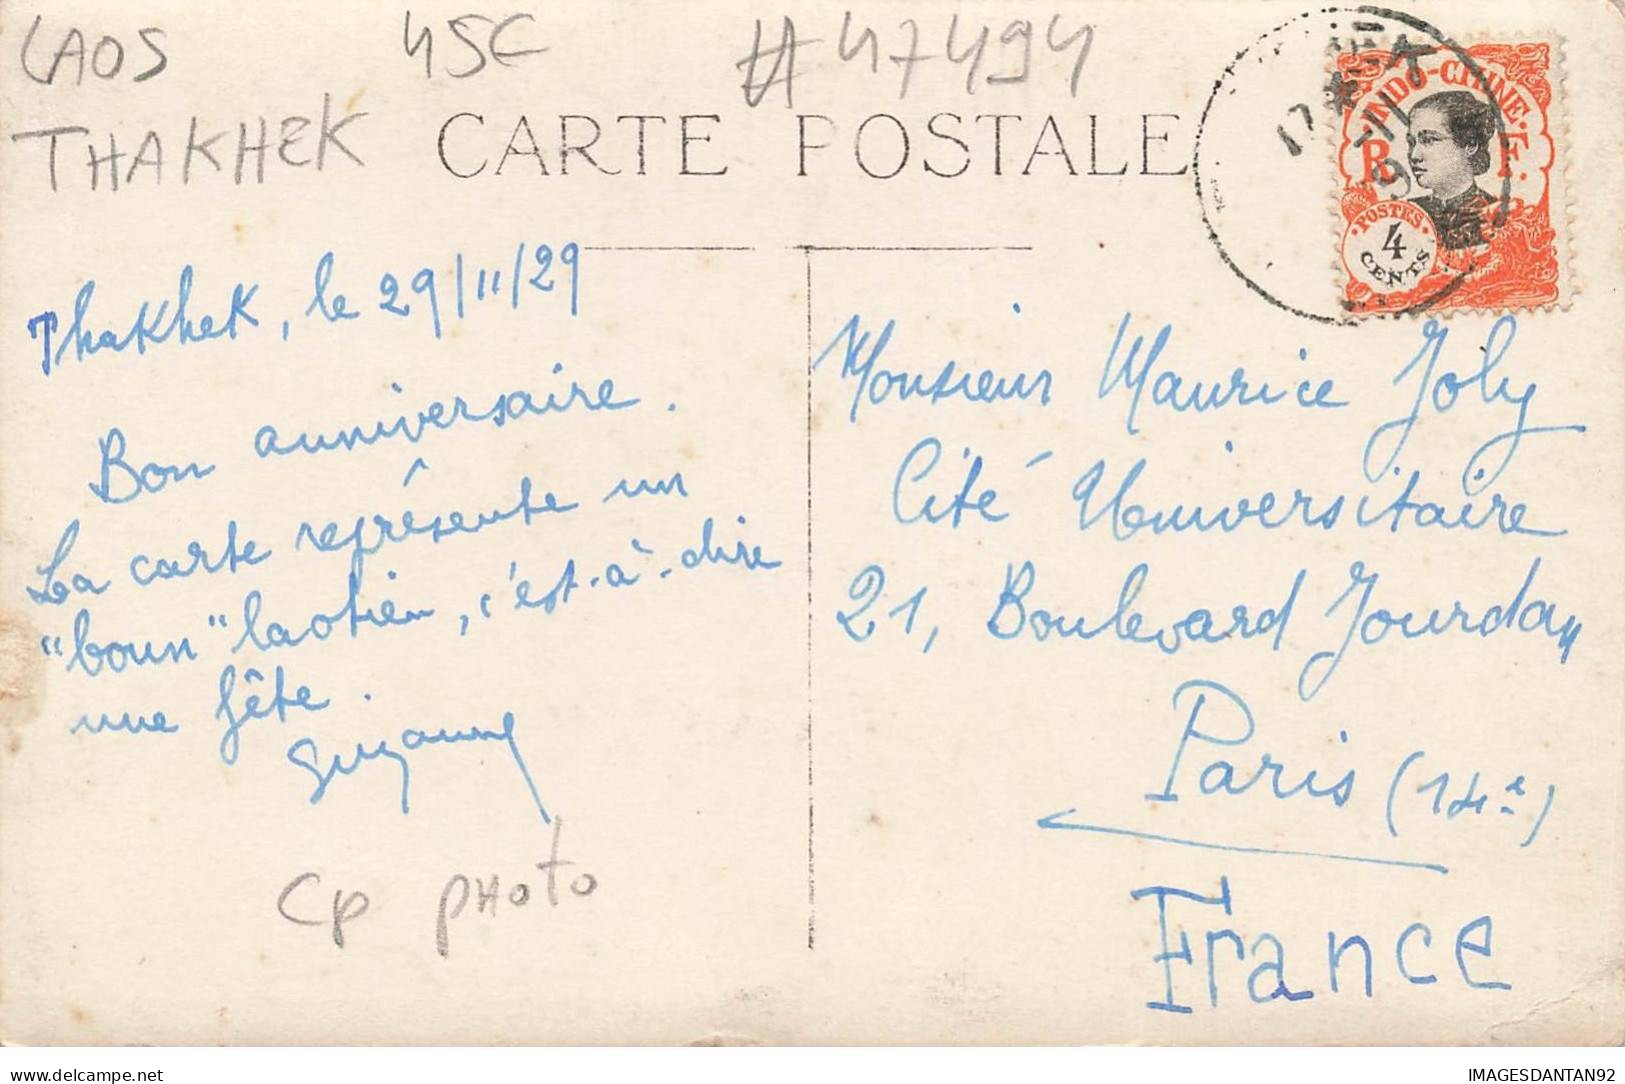 LAOS 45C #47494
THAKHEK
CARTE POSTALE
INDO-CHINE
R F.
POSTES
4
CENTS
17
Thakhek, le 29/11/29
Bon anniversaire.
La carte représente un
"boun" laotien, c'est-à-dire
une fête.
Suzanne
Cp PHOTO
Monsieur Maurice Joly
Cité Universitaire
21, Boulevard Jourdan
Paris (14e)
France
IMAGESDANTAN92